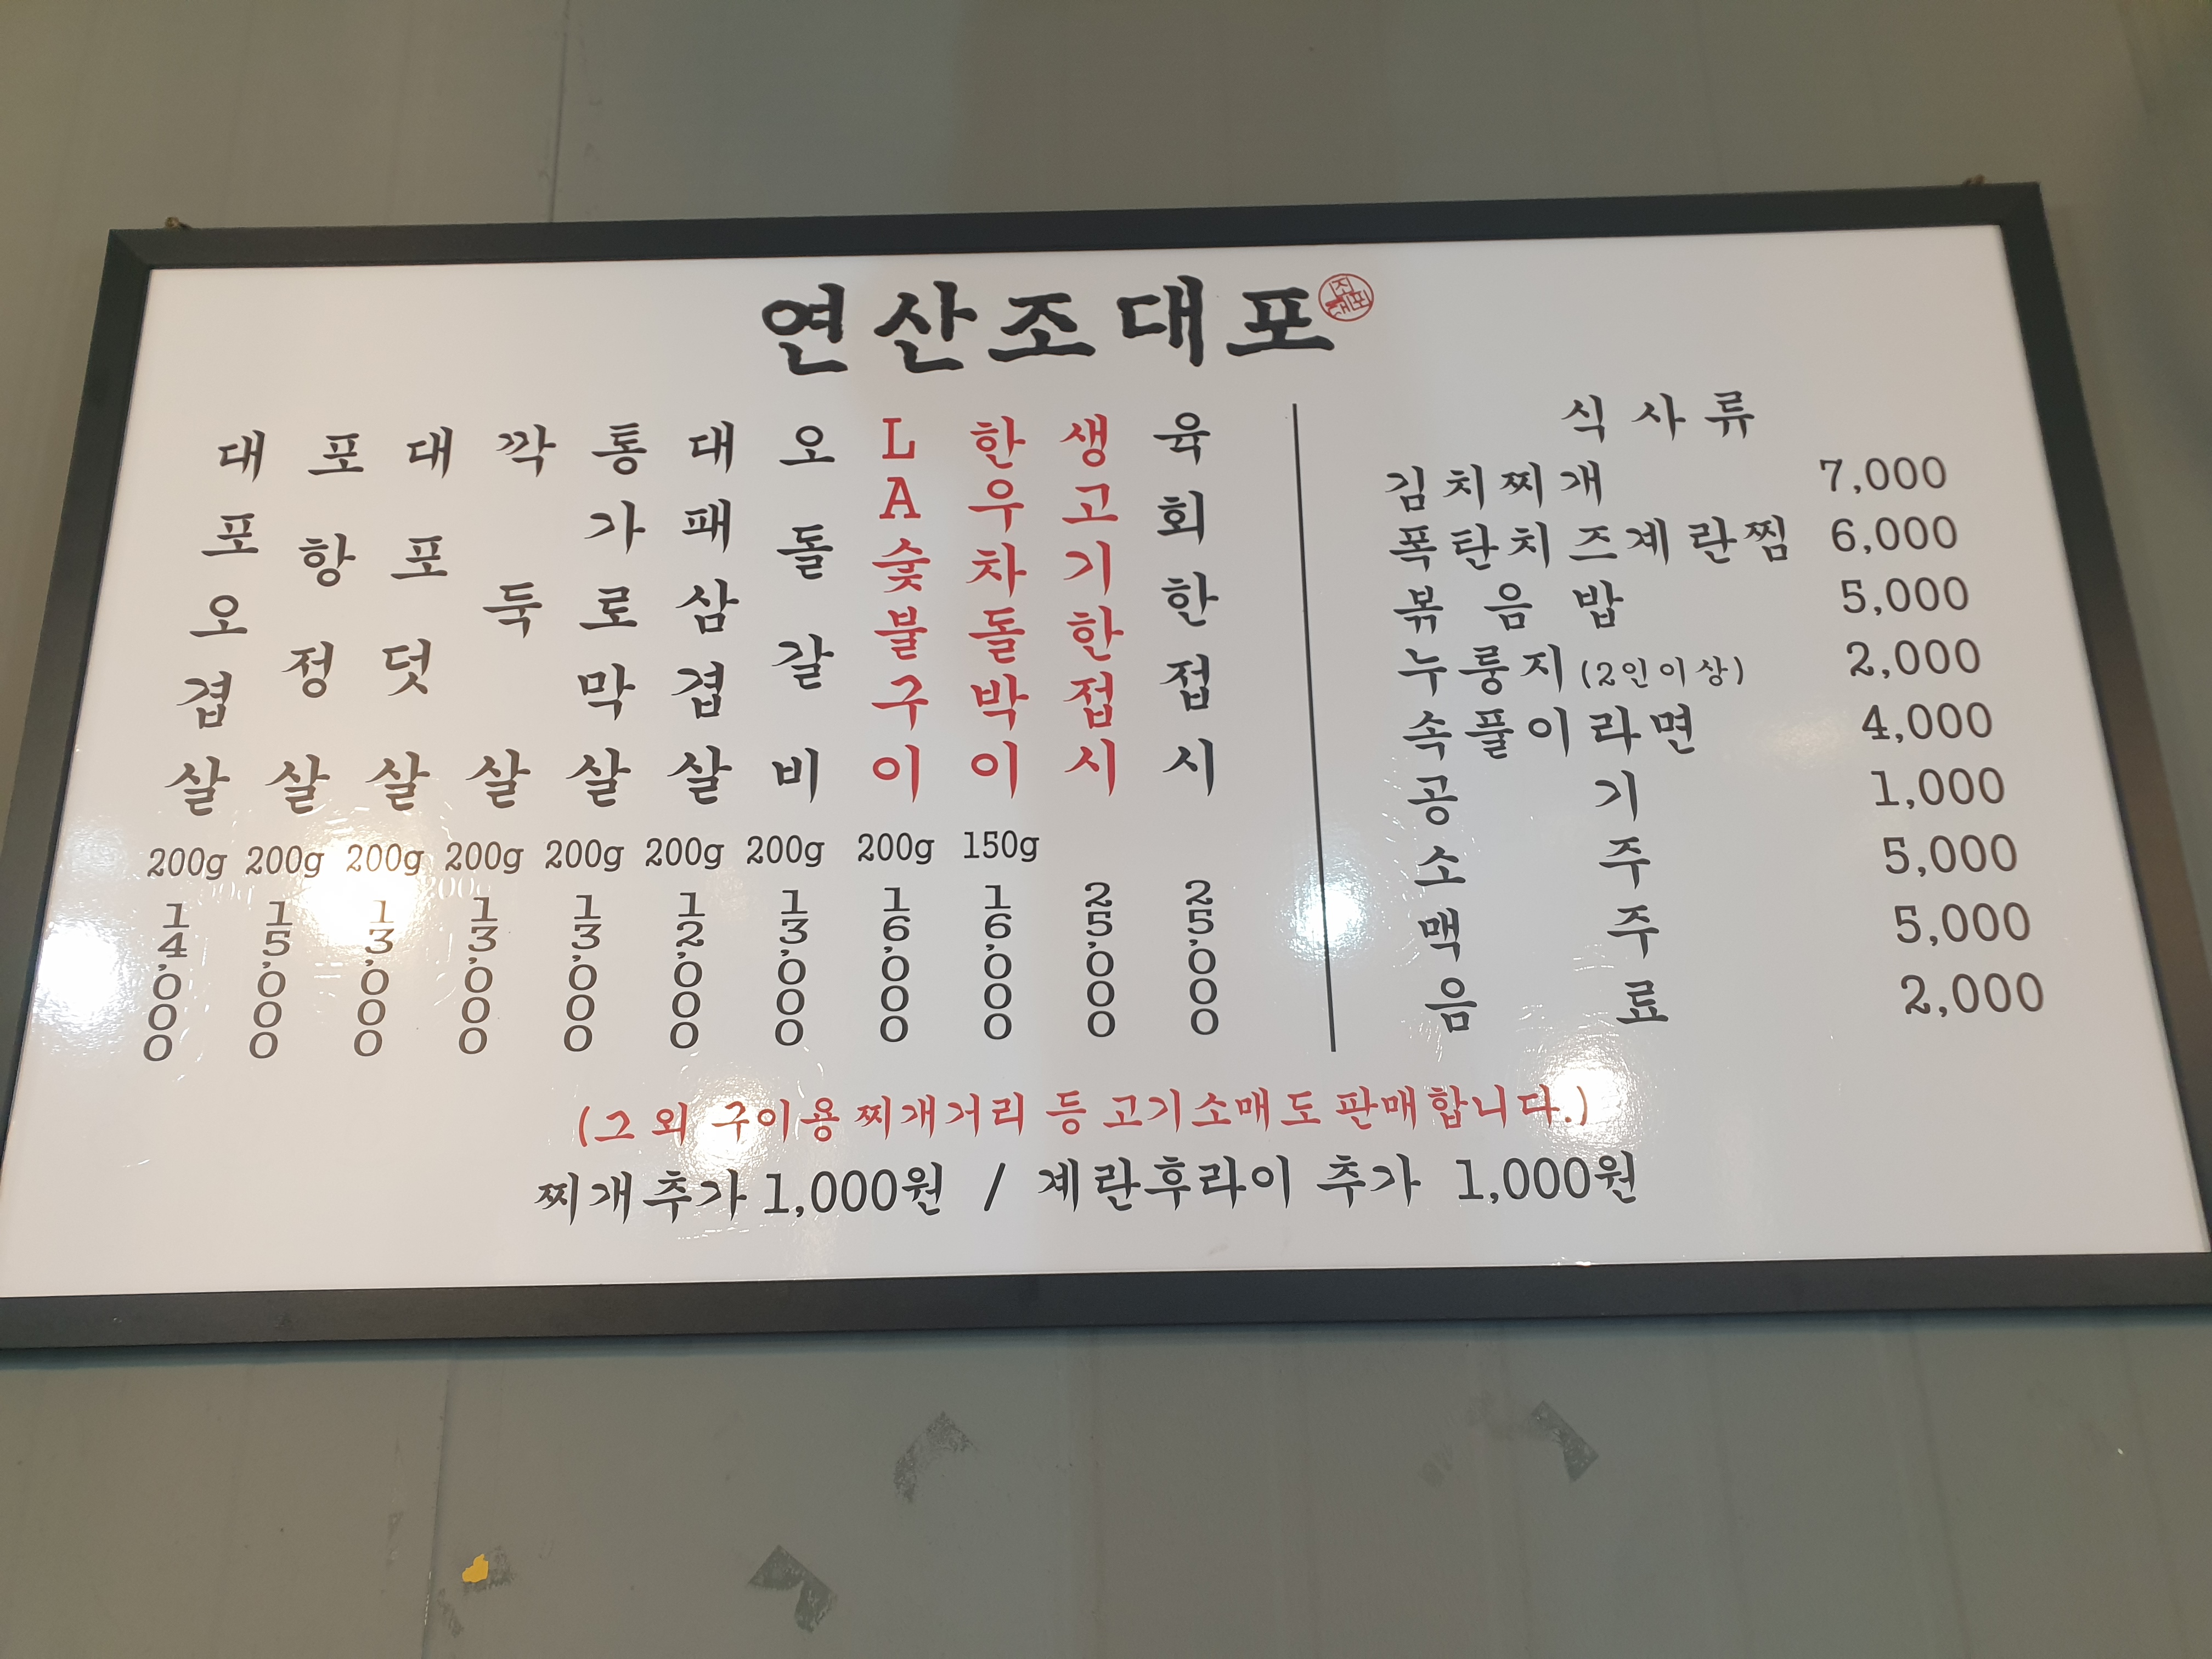 연산조대포
조대포
대포오겹살 200g 14,000
포항정살 200g 15,000
대포덧살 200g 13,000
깍둑살 200g 13,000
통가로막살 200g 13,000
대패삼겹살 200g 12,000
오돌갈비 200g 13,000
LA숯불구이 200g 16,000
한우차돌박이 150g 16,000
생고기한접시 25,000
육회한접시 25,000
식사류
김치찌개 7,000
폭탄치즈계란찜 6,000
볶음밥 5,000
누룽지(2인이상) 2,000
속풀이라면 4,000
공기 1,000
소주 5,000
맥주 5,000
음료 2,000
(그 외 구이용 찌개거리 등 고기소매도 판매합니다.)
찌개추가 1,000원 / 계란후라이 추가 1,000원